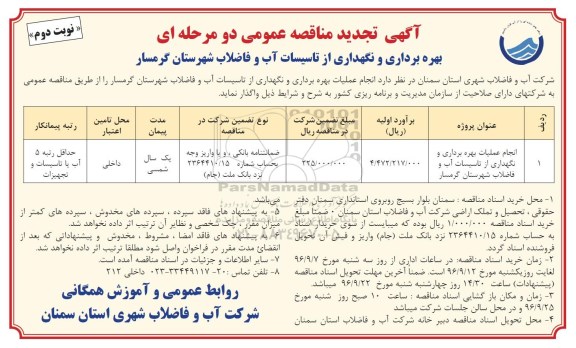 « نوبت دوم »
آگهی تجدید مناقصه عمومی دو مرحله ای
بهره برداری و نگهداری از تاسیسات آب و فاضلاب شهرستان گرمسار
شرکت آب و فاضلاب شهری استان سمنان در نظر دارد انجام عملیات بهره برداری و نگهداری از تاسیسات آب و فاضلاب شهرستان گرمسار را از طریق مناقصه عمومی
به شرکتهای دارای صلاحیت از سازمان مدیریت و برنامه ریزی کشور به شرح و شرایط ذیل واگذار نماید.
ردیف
عنوان پروژه
برآورد اولیه (ریال)
مبلغ تضمین شرکت در مناقصه ریال
نوع تضمین شرکت در مناقصه
مدت پیمان
محل تامین اعتبار
رتبه پیمانکار
۱
انجام عملیات بهره برداری و
نگهداری از تاسیسات آب و
فاضلاب شهرستان گرمسار
۴/۴۷۲/۲۱۷/۰۰۰
۲۲۵/۰۰۰/۰۰۰
ضمانتنامه بانکی ، و یا واریز وجه
بحساب شماره ۲۳۶۴۴۱۰/۱۵
نزد بانک ملت (جام)
یک سال
شمسی
داخلی
حداقل رتبه ۵
آب یا تاسیسات و
تجهیزات
۱- محل خرید اسناد مناقصه : سمنان بلوار بسیج روبروی استانداری سمنان دفتر
حقوقی ، تحصیل و تملک اراضی شرکت آب و فاضلاب استان سمنان ۰ ضمنا مبلغ
خرید اسناد مناقصه ۱/۰۰۰/۰۰۰ ریال بوده که میبایست از سوی خریدار اسناد
به حساب شماره ۲۳۶۴۴۱۰/۱۵ نزد بانک ملت (جام) واریز و فیش آن تحویل
فروشنده اسناد گردد.
۲- زمان خرید اسناد مناقصه: در ساعات اداری از روز سه شنبه مورخ ۹۶/۹/۷
لغایت روزیکشنبه مورخ ۹۶/۹/۱۲ است. ضمناً آخرین مهلت تحویل اسناد مناقصه
(پیشنهادات) ساعت ۱۴/۳۰ روز چهارشنبه شنبه مورخ ۹۶/۹/۲۲ میباشد.
۳- زمان و مکان باز گشایی اسناد مناقصه : ساعت ۱۰ صبح روز شنبه مورخ
۹۶/۹/۲۵ و در محل سالن جلسات شرکت میباشد
۴- محل تحویل اسناد مناقصه دبیر خانه شرکت آب و فاضلاب استان سمنان
میباشد.
۵- به پیشنهاد های فاقد سپرده ، سپرده های مخدوش ، سپرده های کمتر از
میزان مقرر ، چک شخصی و نظایر آن ترتیب اثر داده نخواهد شد.
۶- به پیشنهاد های فاقد امضا ، مشروط ، مخدوش و پیشنهاداتی که بعد از
انقضائ مدت مقرر در فراخوان واصل شود مطلقا ترتیب اثر داده نخواهد شد.
۷- سایر اطلاعات و جزئیات در اسناد مناقصه آمده است.
۸- تلفن تماس :۲۰-۰۲۳-۳۳۴۴۹۱۱۷ داخلی ۲۱۲
روابط عمومی و آموزش همگانی
شرکت آب و فاضلاب شهری استان سمنان
ParsNamadData